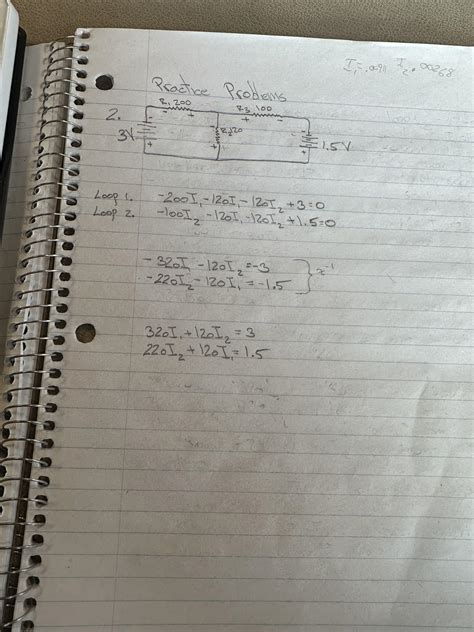 I₁=.0091 I₂=.00268
Practice Problems
R₁ 200 R₃ 100
2.
3V R₂ 120 1.5V
Loop 1. -200I₁-120I₁-120I₂+3=0
Loop 2. -100I₂-120I₁-120I₂+1.5=0
-320I₁-120I₂=-3
-220I₂-120I₁=-1.5
320I₁+120I₂=3
220I₂+120I₁=1.5